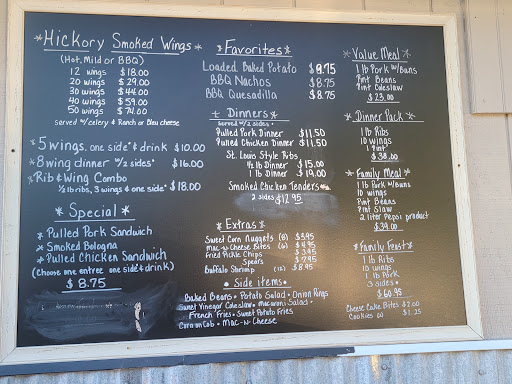 *Hickory Smoked Wings*
(Hot, Mild or BBQ)
12 wings $18.00
20 wings $29.00
30 wings $44.00
40 wings $59.00
50 wings $74.00
served w/celery & Ranch or Bleu cheese
*5 wings, one side* & drink $10.00
*8 wing dinner w/2 sides* $16.00
*Rib & Wing Combo
1/2 lb ribs, 3 wings & one side* $18.00
* Special *
* Pulled Pork Sandwich
* Smoked Bologna
* Pulled Chicken Sandwich
(Choose one entree one side & drink)
$8.75
*Favorites*
Loaded Baked Potato $8.75
BBQ Nachos $8.75
BBQ Quesadilla $8.75
* Dinners *
served w/2 sides *
Pulled Pork Dinner $11.50
Pulled Chicken Dinner $11.50
St. Louis Style Ribs
1/2 lb Dinner $15.00
1 lb Dinner $19.00
Smoked Chicken Tenders
2 sides $12.95
* Extras *
Sweet Corn Nuggets (8) $3.95
Mac-n-Cheese Bites (6) $4.95
Fried Pickle Chips $3.95
Spears $7.95
Buffalo Shrimp (12) $8.95
• Side items •
Baked Beans • Potato Salad • Onion Rings
Sweet Vinegar Coleslaw • Macaroni Salad •
French Fries • Sweet Potato Fries
Corn on Cob • Mac-n-Cheese
* Value Meal *
1 lb Pork w/Buns
Pint Beans
Pint Coleslaw
$23.00
* Dinner Pack *
1 lb Ribs
10 wings
1 Pint
$38.00
* Family Meal *
1 lb Pork w/Buns
10 wings
Pint Beans
Pint Slaw
2 liter Pepsi product
$39.00
*Family Feast*
1 lb Ribs
10 wings
1 lb Pork
3 sides •
$60.95
Cheese Cake Bites $2.00
Cookies (2) $1.25